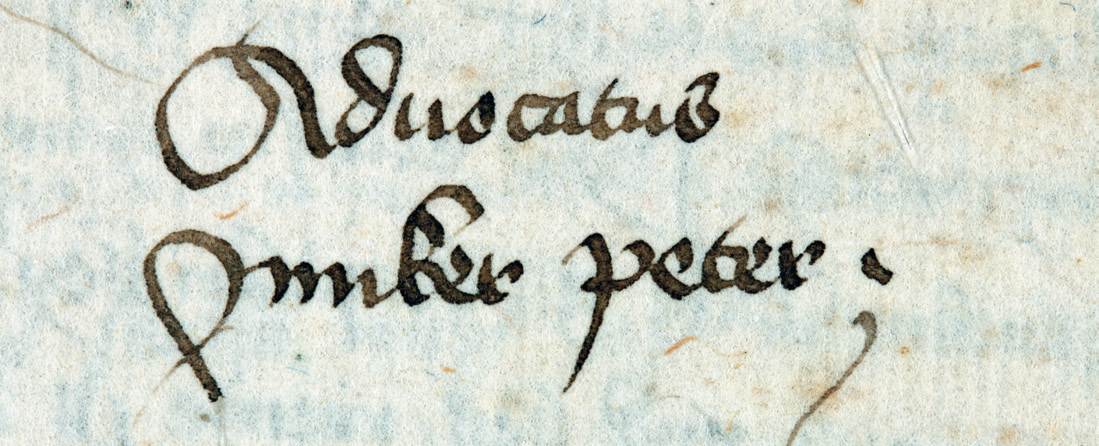 Aduocatus
Junker peter.